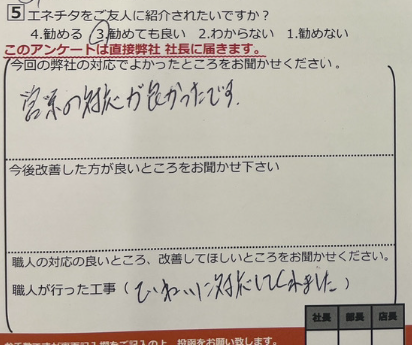 5 エネチタをご友人に紹介されたいですか?
4.勧める 3.勧めても良い 2.わからない 1.勧めない
このアンケートは直接弊社 社長に届きます。
今回の弊社の対応でよかったところをお聞かせください。
営業の対応が良かったです.
今後改善した方が良いところをお聞かせ下さい
職人の対応の良いところ、改善してほしいところをお聞かせください。
職人が行った工事(ていねいに対応してくれました)
社長 部長 店長
ご記入の上、投函をお願い致します。